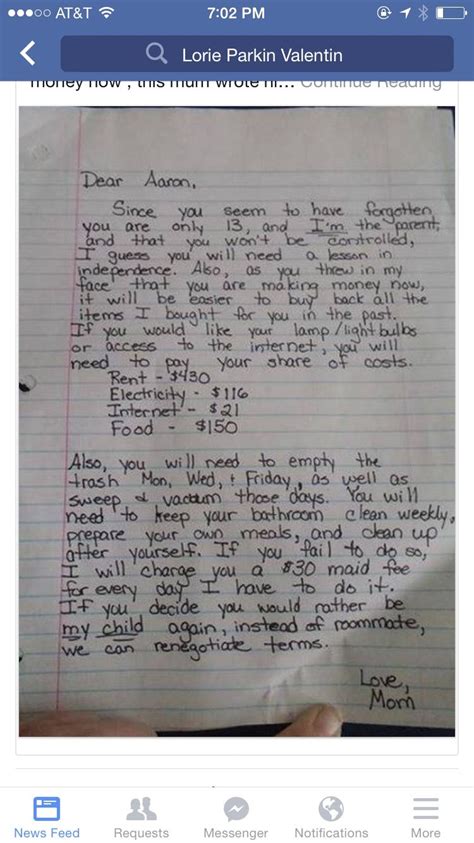 AT&T
7:02 PM
Lorie Parkin Valentin
money now , this mum wrote hi... Continue Reading
Dear Aaron,
Since you seem to have forgotten
you are only 13, and I'm the parent,
and that you won't be controlled,
I guess you will need a lesson in
independence. Also, as you threw in my
face that you are making money now,
it will be easier to buy back all the
items I bought for you in the past.
If you would like your lamp/lightbulbs
or access to the internet, you will
need to pay your share of costs.
Rent - $430
Electricity - $116
Internet - $21
Food - $150
Also, you will need to empty the
trash Mon, Wed, + Friday, as well as
sweep & vacuum those days. You will
need to keep your bathroom clean weekly,
prepare your own meals, and clean up
after yourself. If you fail to do so,
I will charge you a $30 maid fee
for every day I have to do it.
If you decide you would rather be
my child again, instead of roommate,
we can renegotiate terms.
Love,
Mom
News Feed
Requests
Messenger
Notifications
More